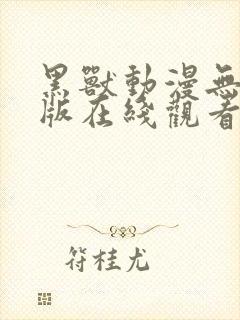 黑獸動漫無
版在綫觀看
符桂尤